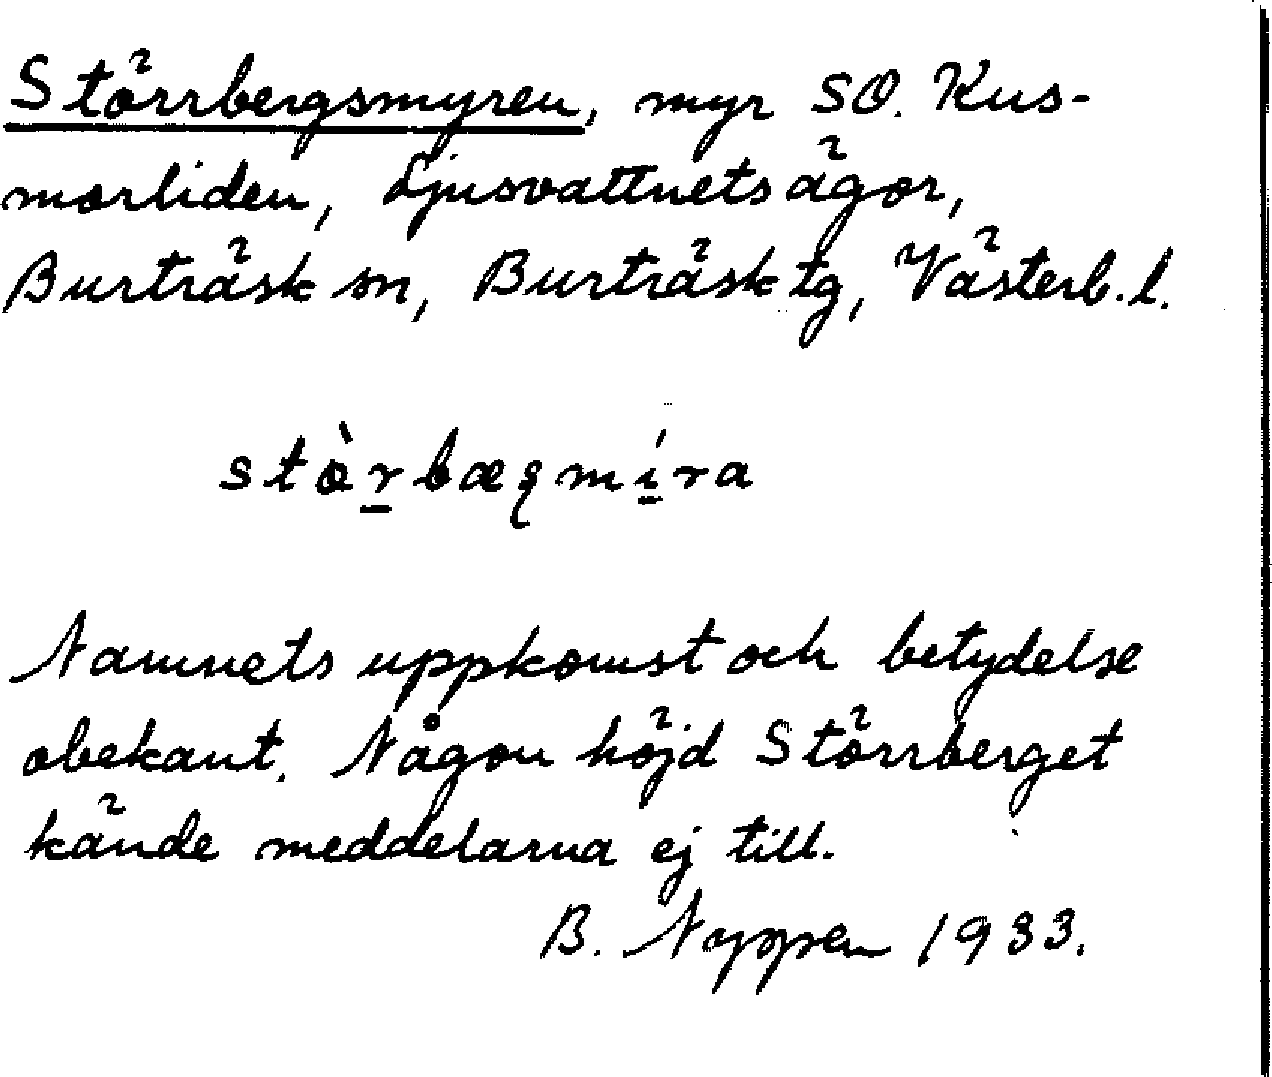 Störrbergsmyren, myr SO. Kus-
morliden, Ljusvattnets ägor,
Burträsk sn, Burträsk tg, Västerb. l.
stòrbæqmíra
Namnets uppkomst och betydelse
obekant. Någon höjd Störrberget
kände meddelarna ej till.
B. Nyppen 1933.